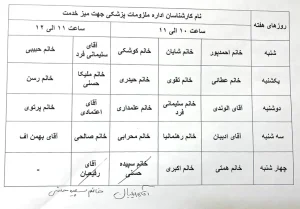 نام کارشناسان اداره ملزومات پزشکی جهت میز خدمت
روزهای هفته
ساعت ۱۰ الی ۱۱
ساعت ۱۱ الی ۱۲
شنبه
خانم احمدپور
خانم شایان
خانم کوشکی
آقای سلیمانی فرد
خانم حبیبی
یکشنبه
خانم عطائی
خانم تقوی
خانم حیدری
خانم ملیکا حسنی
خانم رسن
دوشنبه
آقای الوندی
خانم سلیمانی فرد
خانم علمداری
آقای اعتمادی
خانم پرتوی
سه شنبه
آقای ادیبان
خانم رهنمانیا
خانم محرابی
خانم صالحی
آقای بهمن اف
چهار شنبه
خانم همتی
خانم اکبری
خانم سپیده حسنی
آقای رفیعیان
-